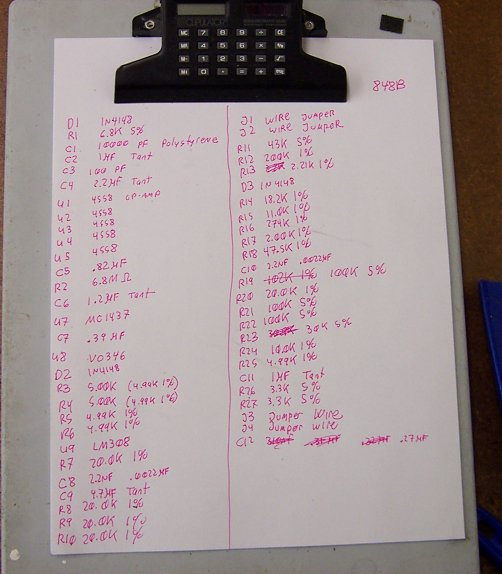 848B
D1 1N4148
R1 6.8K 5%
C1 10000 PF Polystyrene
C2 1MF Tant
C3 100 PF
C4 2.2MF Tant
U1 4558 OP-AMP
U2 4558
U3 4558
U4 4558
U5 4558
C5 .82MF
R2 6.8M Ω
C6 1.2MF Tant
U7 MC1437
C7 .39MF
U8 VO346
D2 1N4148
R3 5.00K (4.99K 1%)
R4 5.00K (4.99K 1%)
R5 4.99K 1%
R6 4.99K 1%
U9 LM308
R7 20.0K 1%
C8 2.2NF .0022MF
C9 4.7MF Tant
R8 20.0K 1%
R9 20.0K 1%
R10 20.0K 1%
J1 WIRE Jumper
J2 WIRE JumpeR
R11 43K 5%
R12 200K 1%
R13 2.21K 1%
D3 1N4148
R14 18.2K 1%
R15 11.0K 1%
R16 274K 1%
R17 2.00K 1%
R18 47.5K 1%
C10 2.2NF .0022MF
R19 102K 1% 100K 5%
R20 20.0K 1%
R21 100K 5%
R22 100K 5%
R23 30K 5%
R24 100K 1%
R25 4.99K 1%
C11 1MF Tant
R26 3.3K 5%
R27 3.3K 5%
J3 Jumper Wire
J4 Jumper wire
C12 .27MF